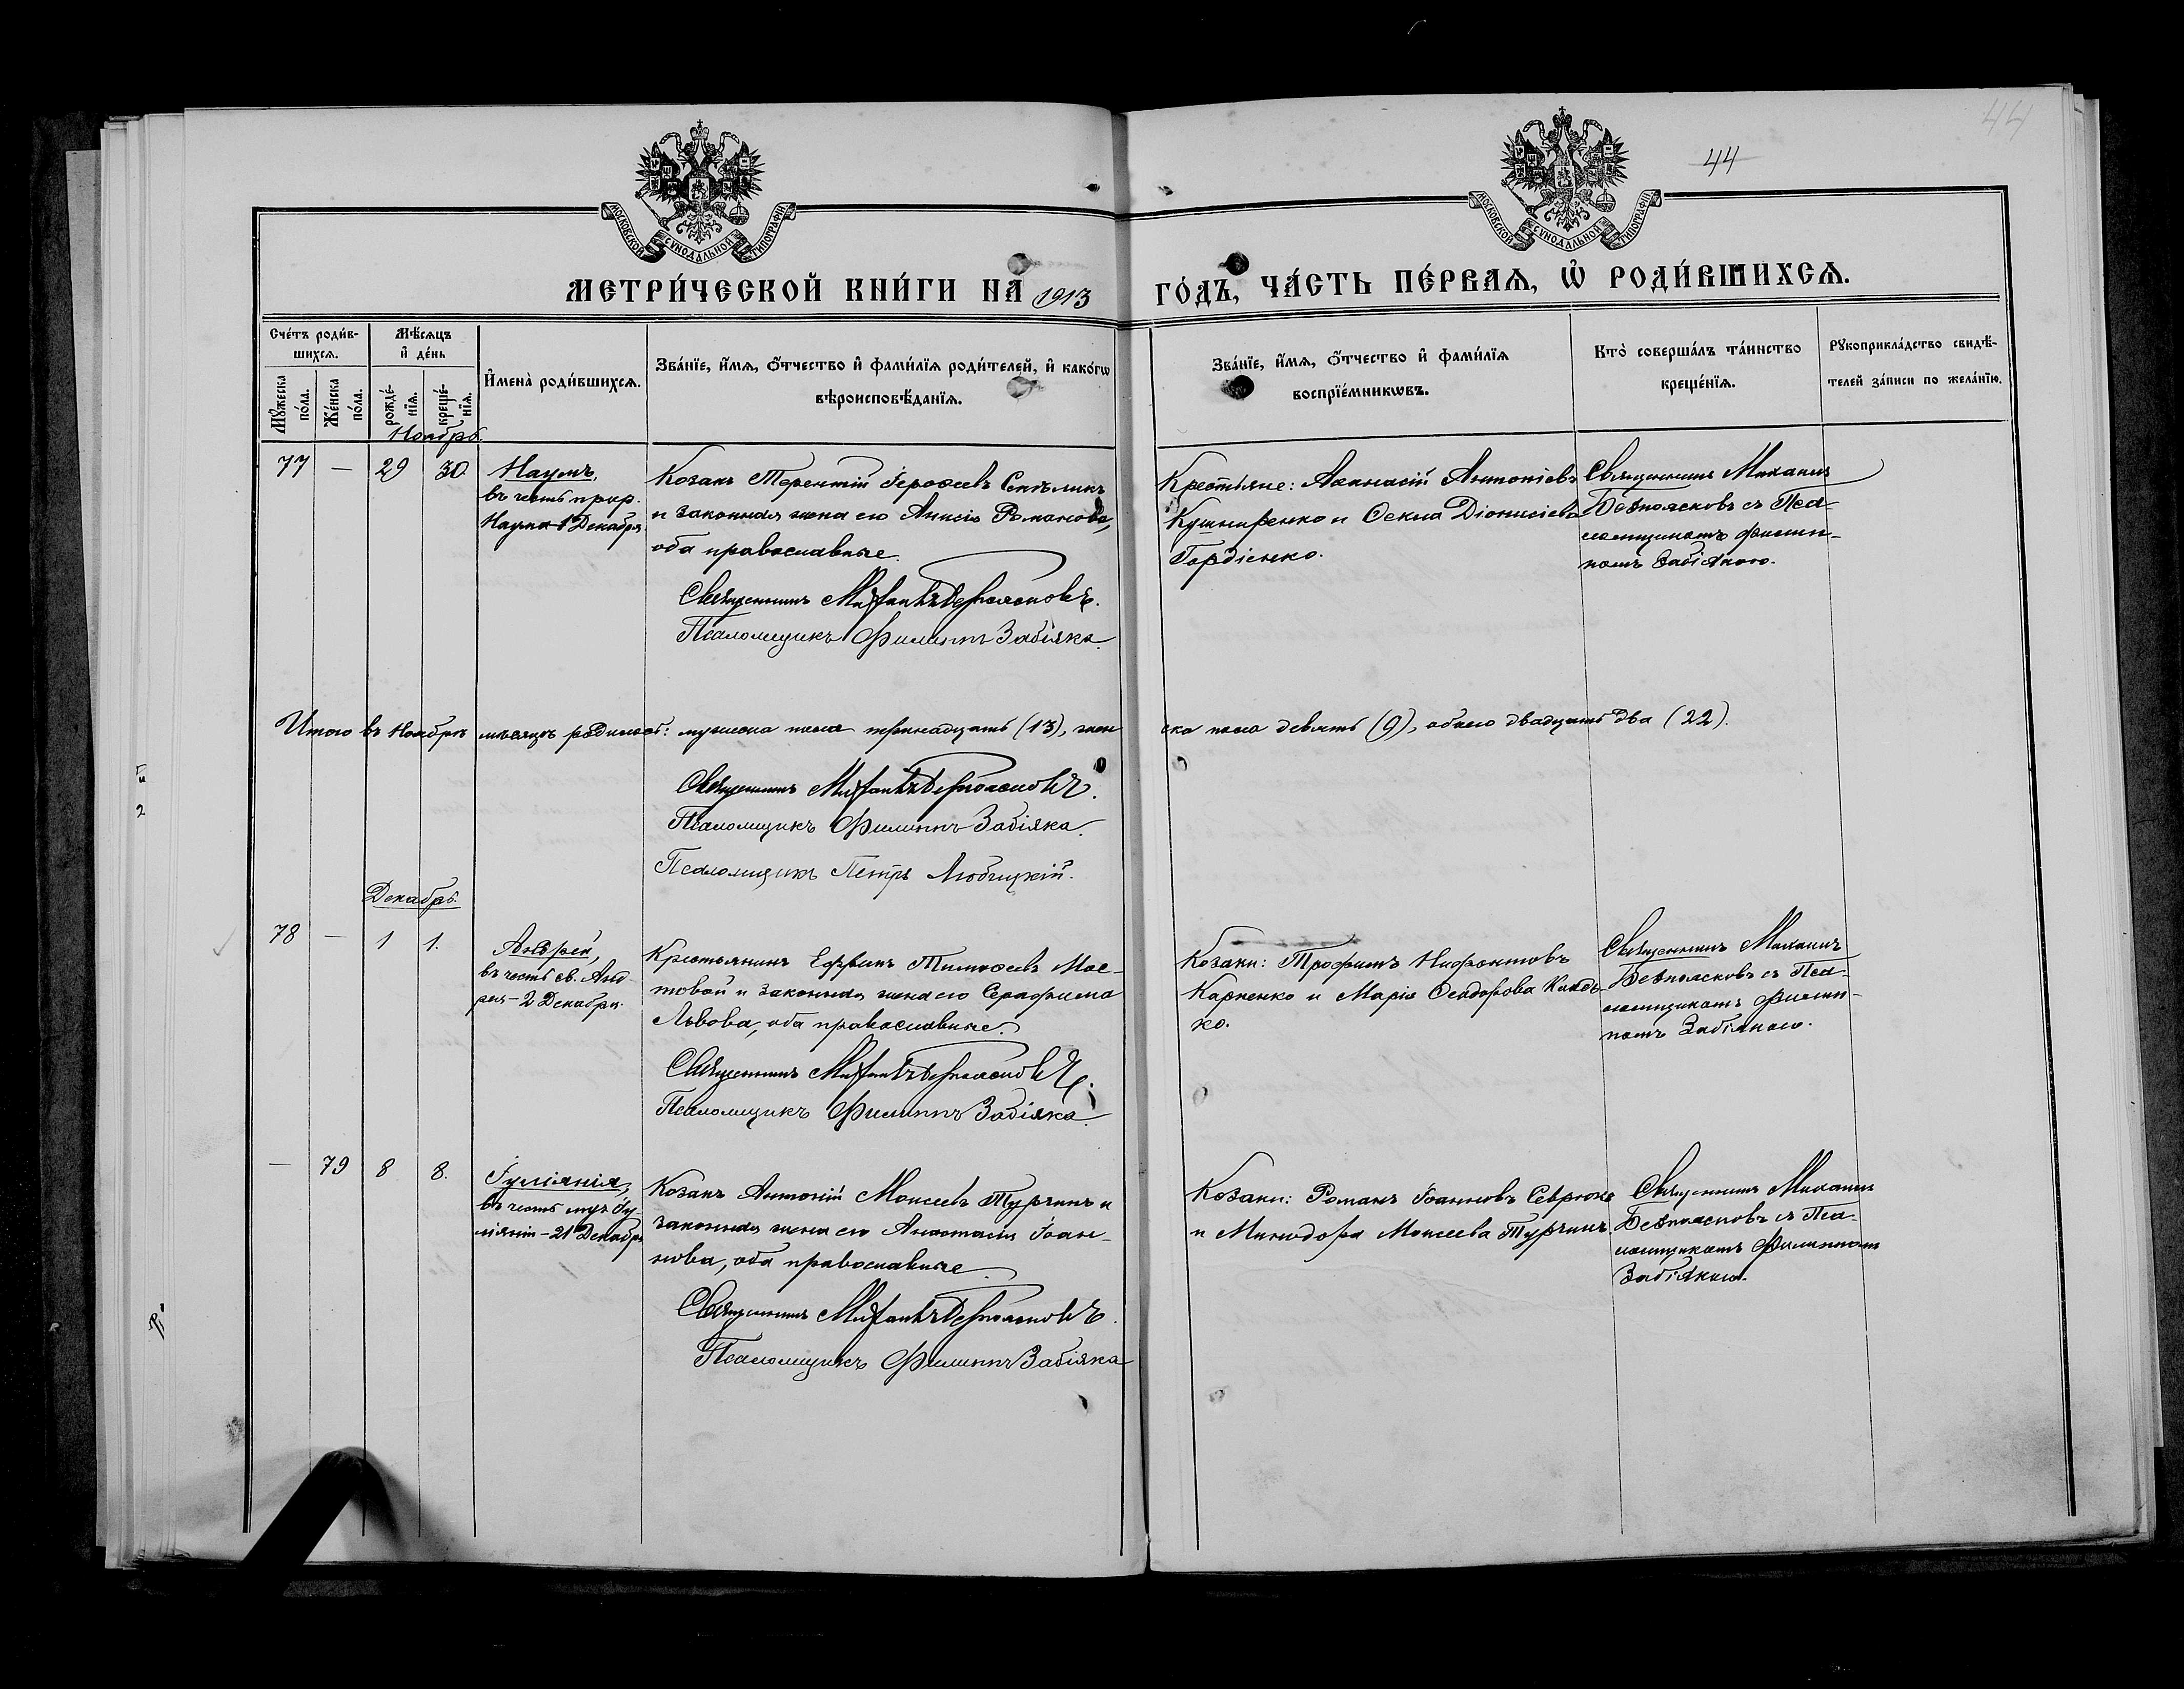 44
44
МОСКОВСКОЙ СУНОДАЛЬНОЙ ТИПОГРАФІИ
МОСКОВСКОЙ СУНОДАЛЬНОЙ ТИПОГРАФІИ
МЕТРИ́ЧЕСКОЙ КНИ́ГИ НА 1913
ГО́ДЪ, ЧА́СТЬ ПЕ́РВАѦ, Ѡ҆ РОДИ́ВШИХСѦ.
Сче́тъ роди́в-
шихсѧ.
Мѣ́сѧцъ
и҆ де́нь
Мꙋ́жеска по́ла.
Же́нска по́ла.
рожде́-нїѧ.
креще́-нїѧ.
И҆мена̀ роди́вшихсѧ.
Зва́нїе, и҆́мѧ, ѻ҆́тчество и҆ фами́лїѧ роди́телей, и҆ како́гѡ
вѣроисповѣ́данїѧ.
Зва́нїе, и҆́мѧ, ѻ҆́тчество и҆ фами́лїѧ
воспрїе́мникѡвъ.
Кто̀ соверша́лъ та́инство
креще́нїѧ.
Рꙋкоприкла́дство свидѣ́-
телей за́писи по жела́нїю.
Ноябрь.
77 — 29 30
Наумъ,
въ честь прор.
Наума 1 Декабря
Козакъ Терентій Іерофеевъ
и законная жена его Анисія Романова,
оба православные.
Священникъ Михаилъ Безпоясковъ.
Псаломщикъ Филиппъ Забіяка.
Крестьяне: Аѳанасій Антоніевъ
Кушниренко и Ѳекла Діонисіева
Гордіенко.
Священникъ Михаилъ
Безпоясковъ съ Пса-
ломщикомъ Филип-
помъ Забіякою.
Итого въ Ноябрѣ мѣсяцѣ родилось: мужеска пола тринадцать (13), жен
ска пола девять (9), обоего двадцать два (22).
Священникъ Михаилъ Безпоясковъ.
Псаломщикъ Филиппъ Забіяка.
Псаломщикъ Петръ Любицкій.
Декабрь.
78 — 1 1.
Андрей,
въ честь св. Анд
рея – 2 Декабря.
Крестьянинъ Тимофеевъ Мос-
товой и законная жена его Серафима
Львова, оба православные.
Священникъ Михаилъ Безпоясковъ.
Псаломщикъ Филиппъ Забіяка.
Козаки: Трофимъ Нифонтовъ
Карпенко и Марія Ѳеодорова
ко.
Священникъ Михаилъ
Безпоясковъ съ Пса-
ломщикомъ Филип-
помъ Забіякою.
— 79 8 8.
Іуліанія,
въ честь муч. Іу-
ліаніи – 21 Декабря
Козакъ Антоній Моисеевъ Турчинъ и
законная жена его Анастасія Іоан-
нова, оба православные.
Священникъ Михаилъ Безпоясковъ.
Псаломщикъ Филиппъ Забіяка
Козаки: Романъ Іоанновъ Севрюкъ
и Минодора Моисеева Турчинъ.
Священникъ Михаилъ
Безпоясковъ съ Пса-
ломщикомъ Филиппомъ
Забіякою.